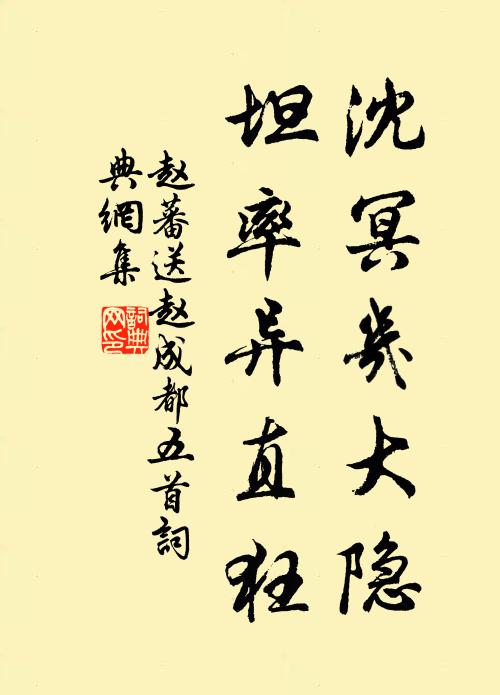 沈冥几大隐
坦率异直狂
赵蕃送赵成都五首詞
典網集
詞典网印